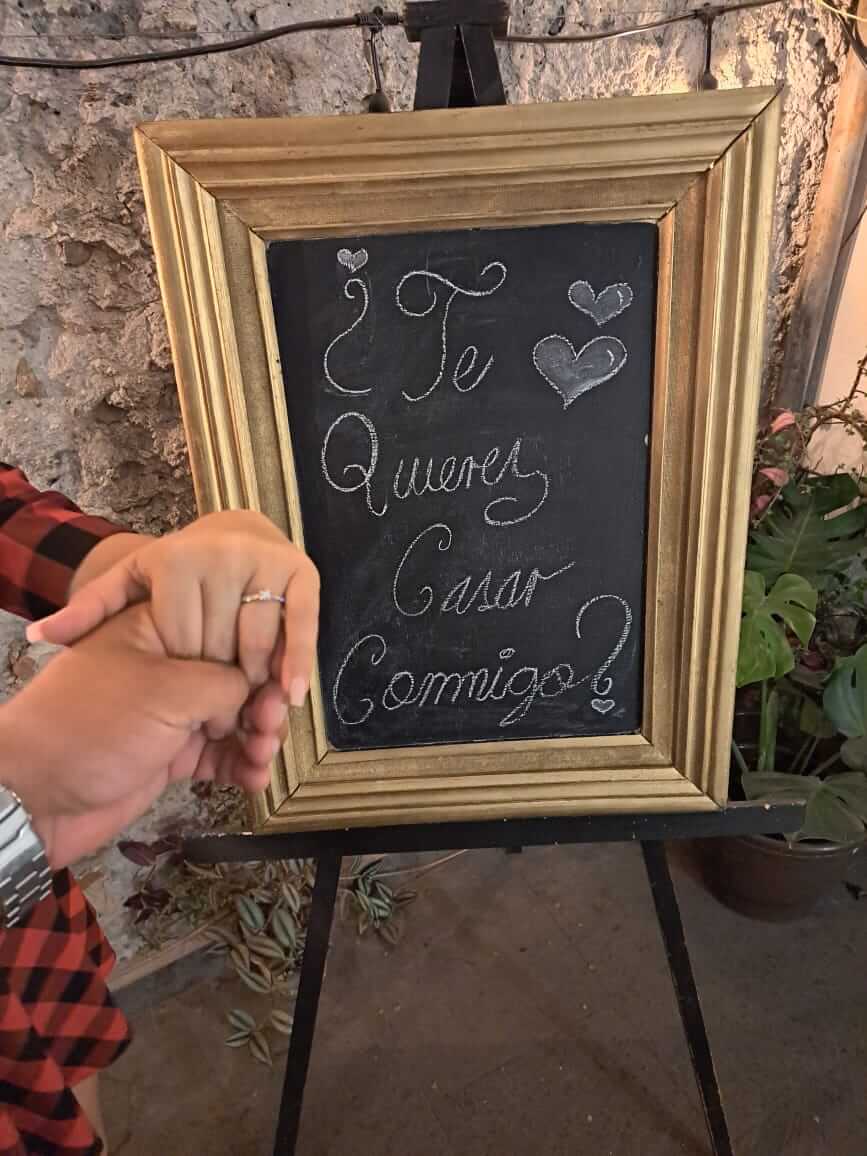 ¿Te
Quieres
Casar
Conmigo?